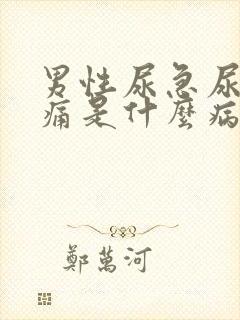 男性尿急尿
痛是什麼病
鄭萬河